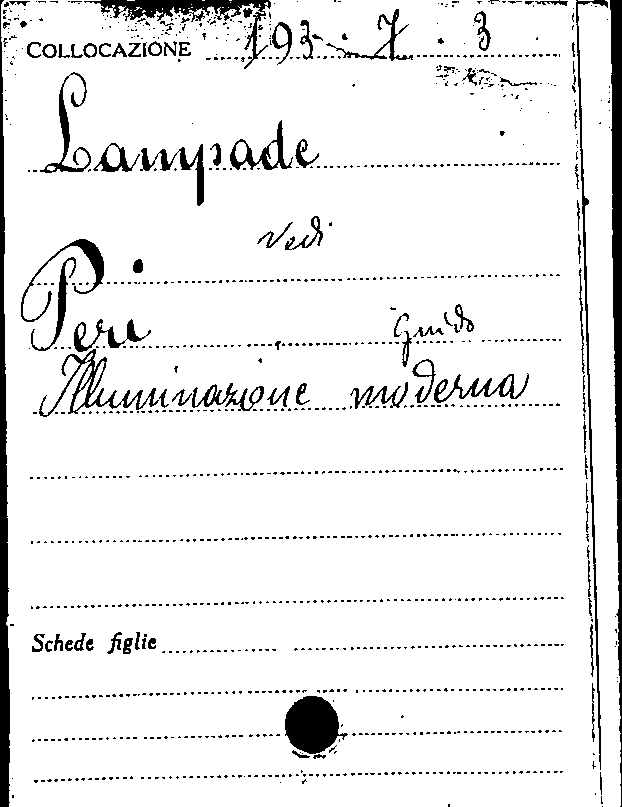 COLLOCAZIONE 193. 7. 3
Lampade
Vedi
Peri Guido
Illuminazione moderna
Schede figlie